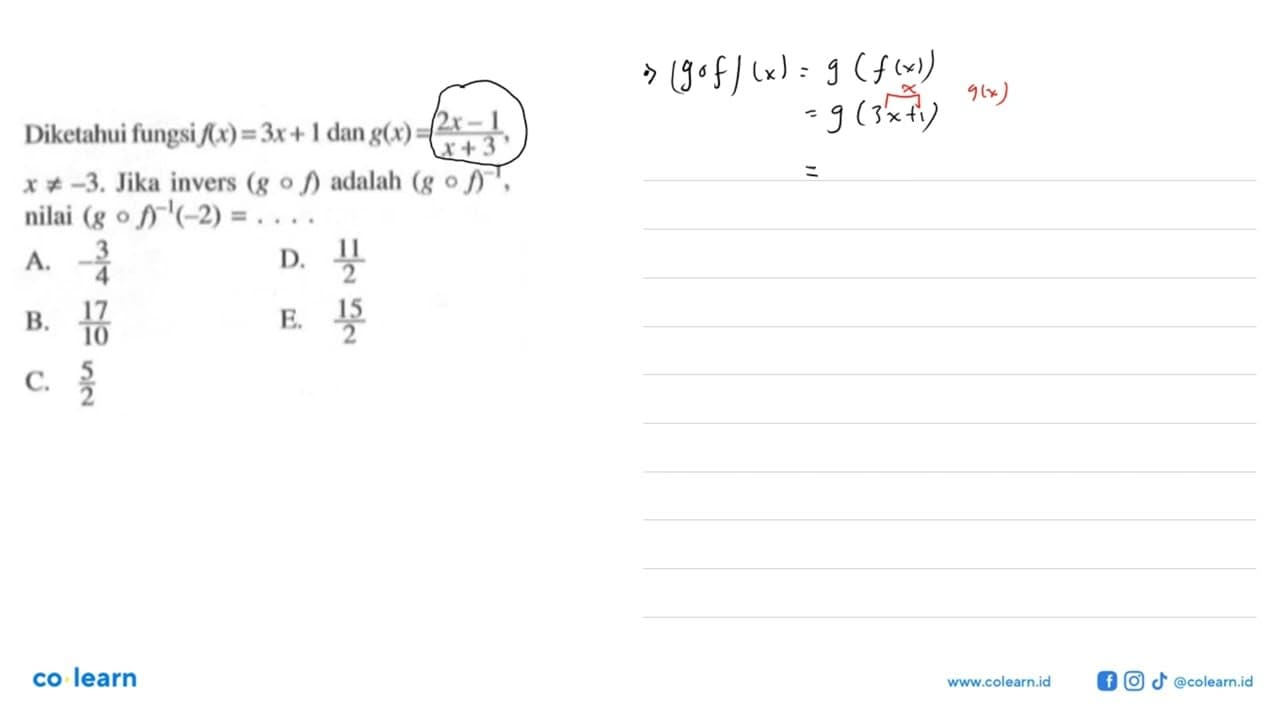 Diketahui fungsi f(x) = 3x + 1 dan g(x) = (2x – 1)/(x + 3),
x ≠ –3. Jika invers (g ∘ f) adalah (g ∘ f)⁻¹,
nilai (g ∘ f)⁻¹(–2) = . . . .
A. –3/4
B. 17/10
C. 5/2
D. 11/2
E. 15/2
→ (g∘f)(x) = g(f(x))
= g(3x+1)
x
g(x)
=
co learn
www.colearn.id
@colearn.id